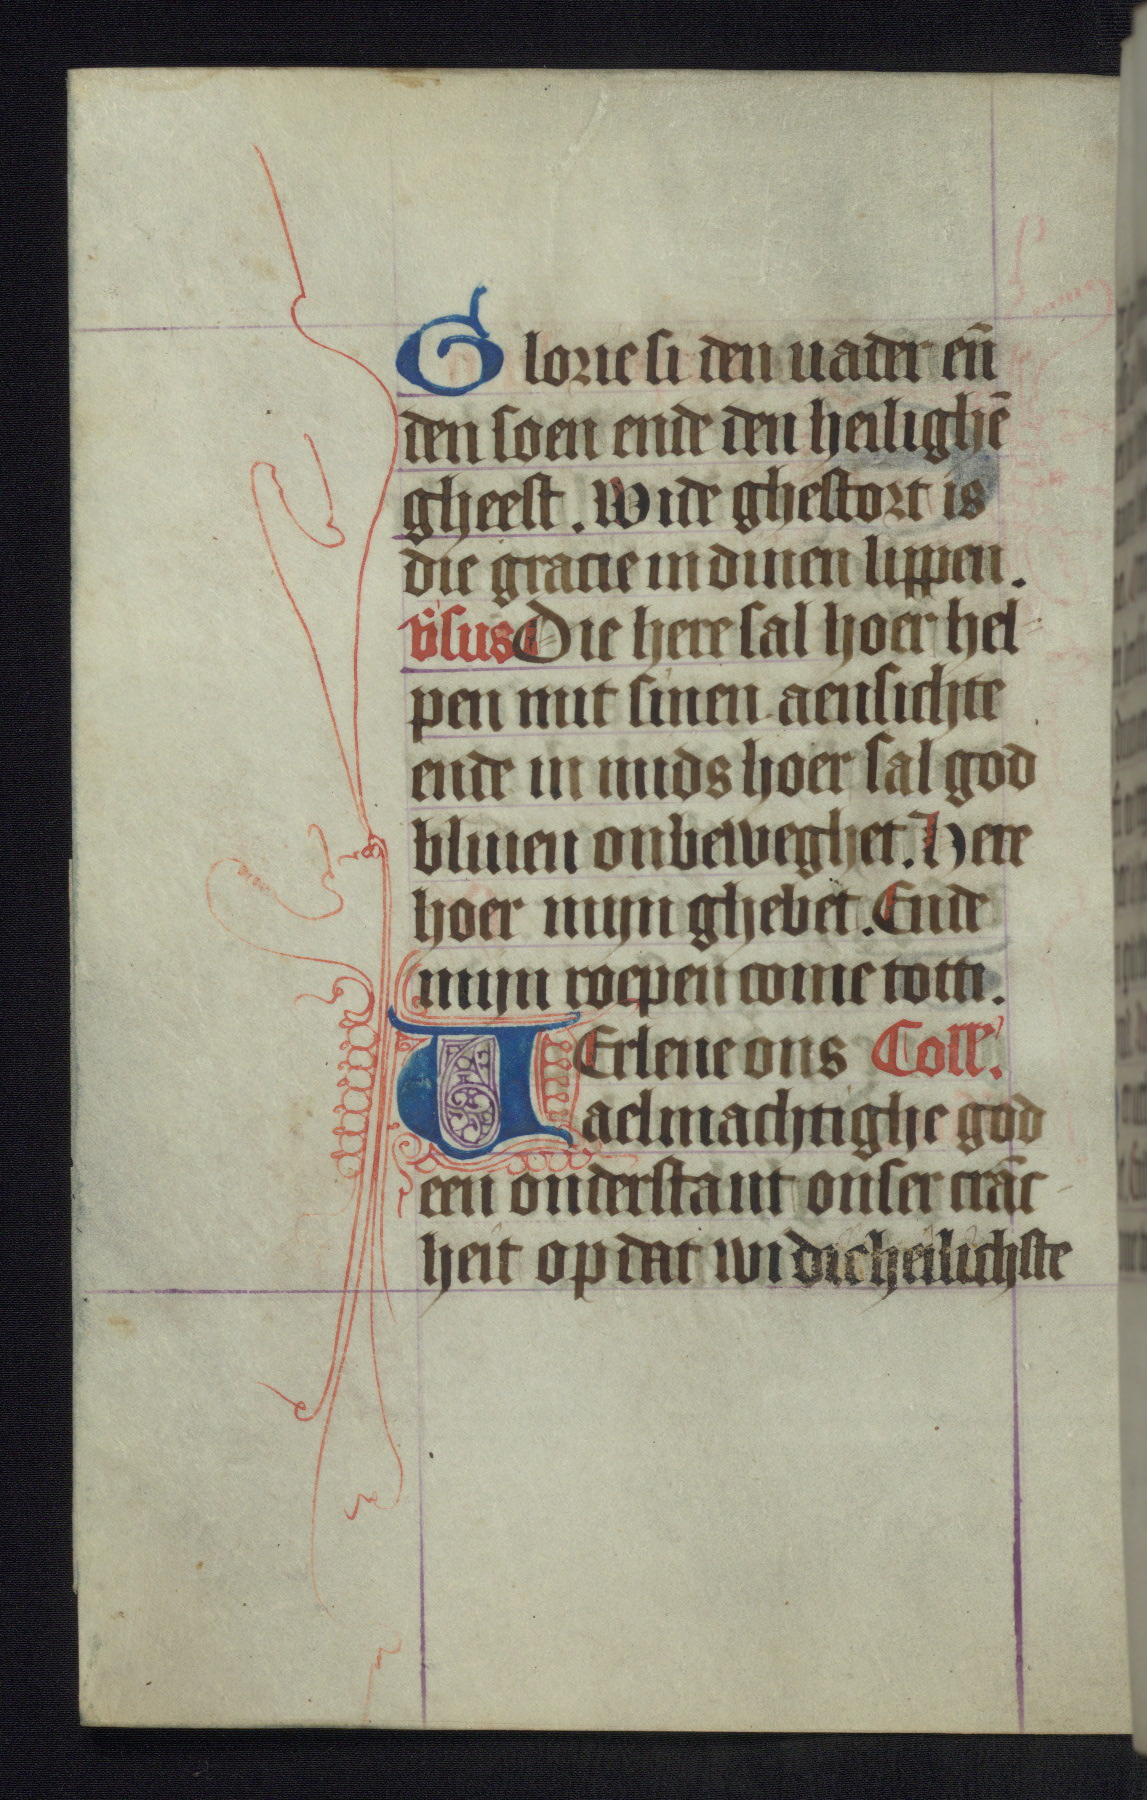 Glorie si den uader en̄
den soen ende den heilighē
gheest. Wide ghestort is
die gracie in dinen lippen.
v̄sus Die here sal hoer hel
pen mit sinen aensichte
ende in mids hoer sal god
bliuen onbeweghet. Here
hoer mijn ghebet. Ende
mijn roepen come totti.
VErlene ons Coll'.
aelmachtighe god
een onderstant onser crāc
heit op dat wi dic heilichste